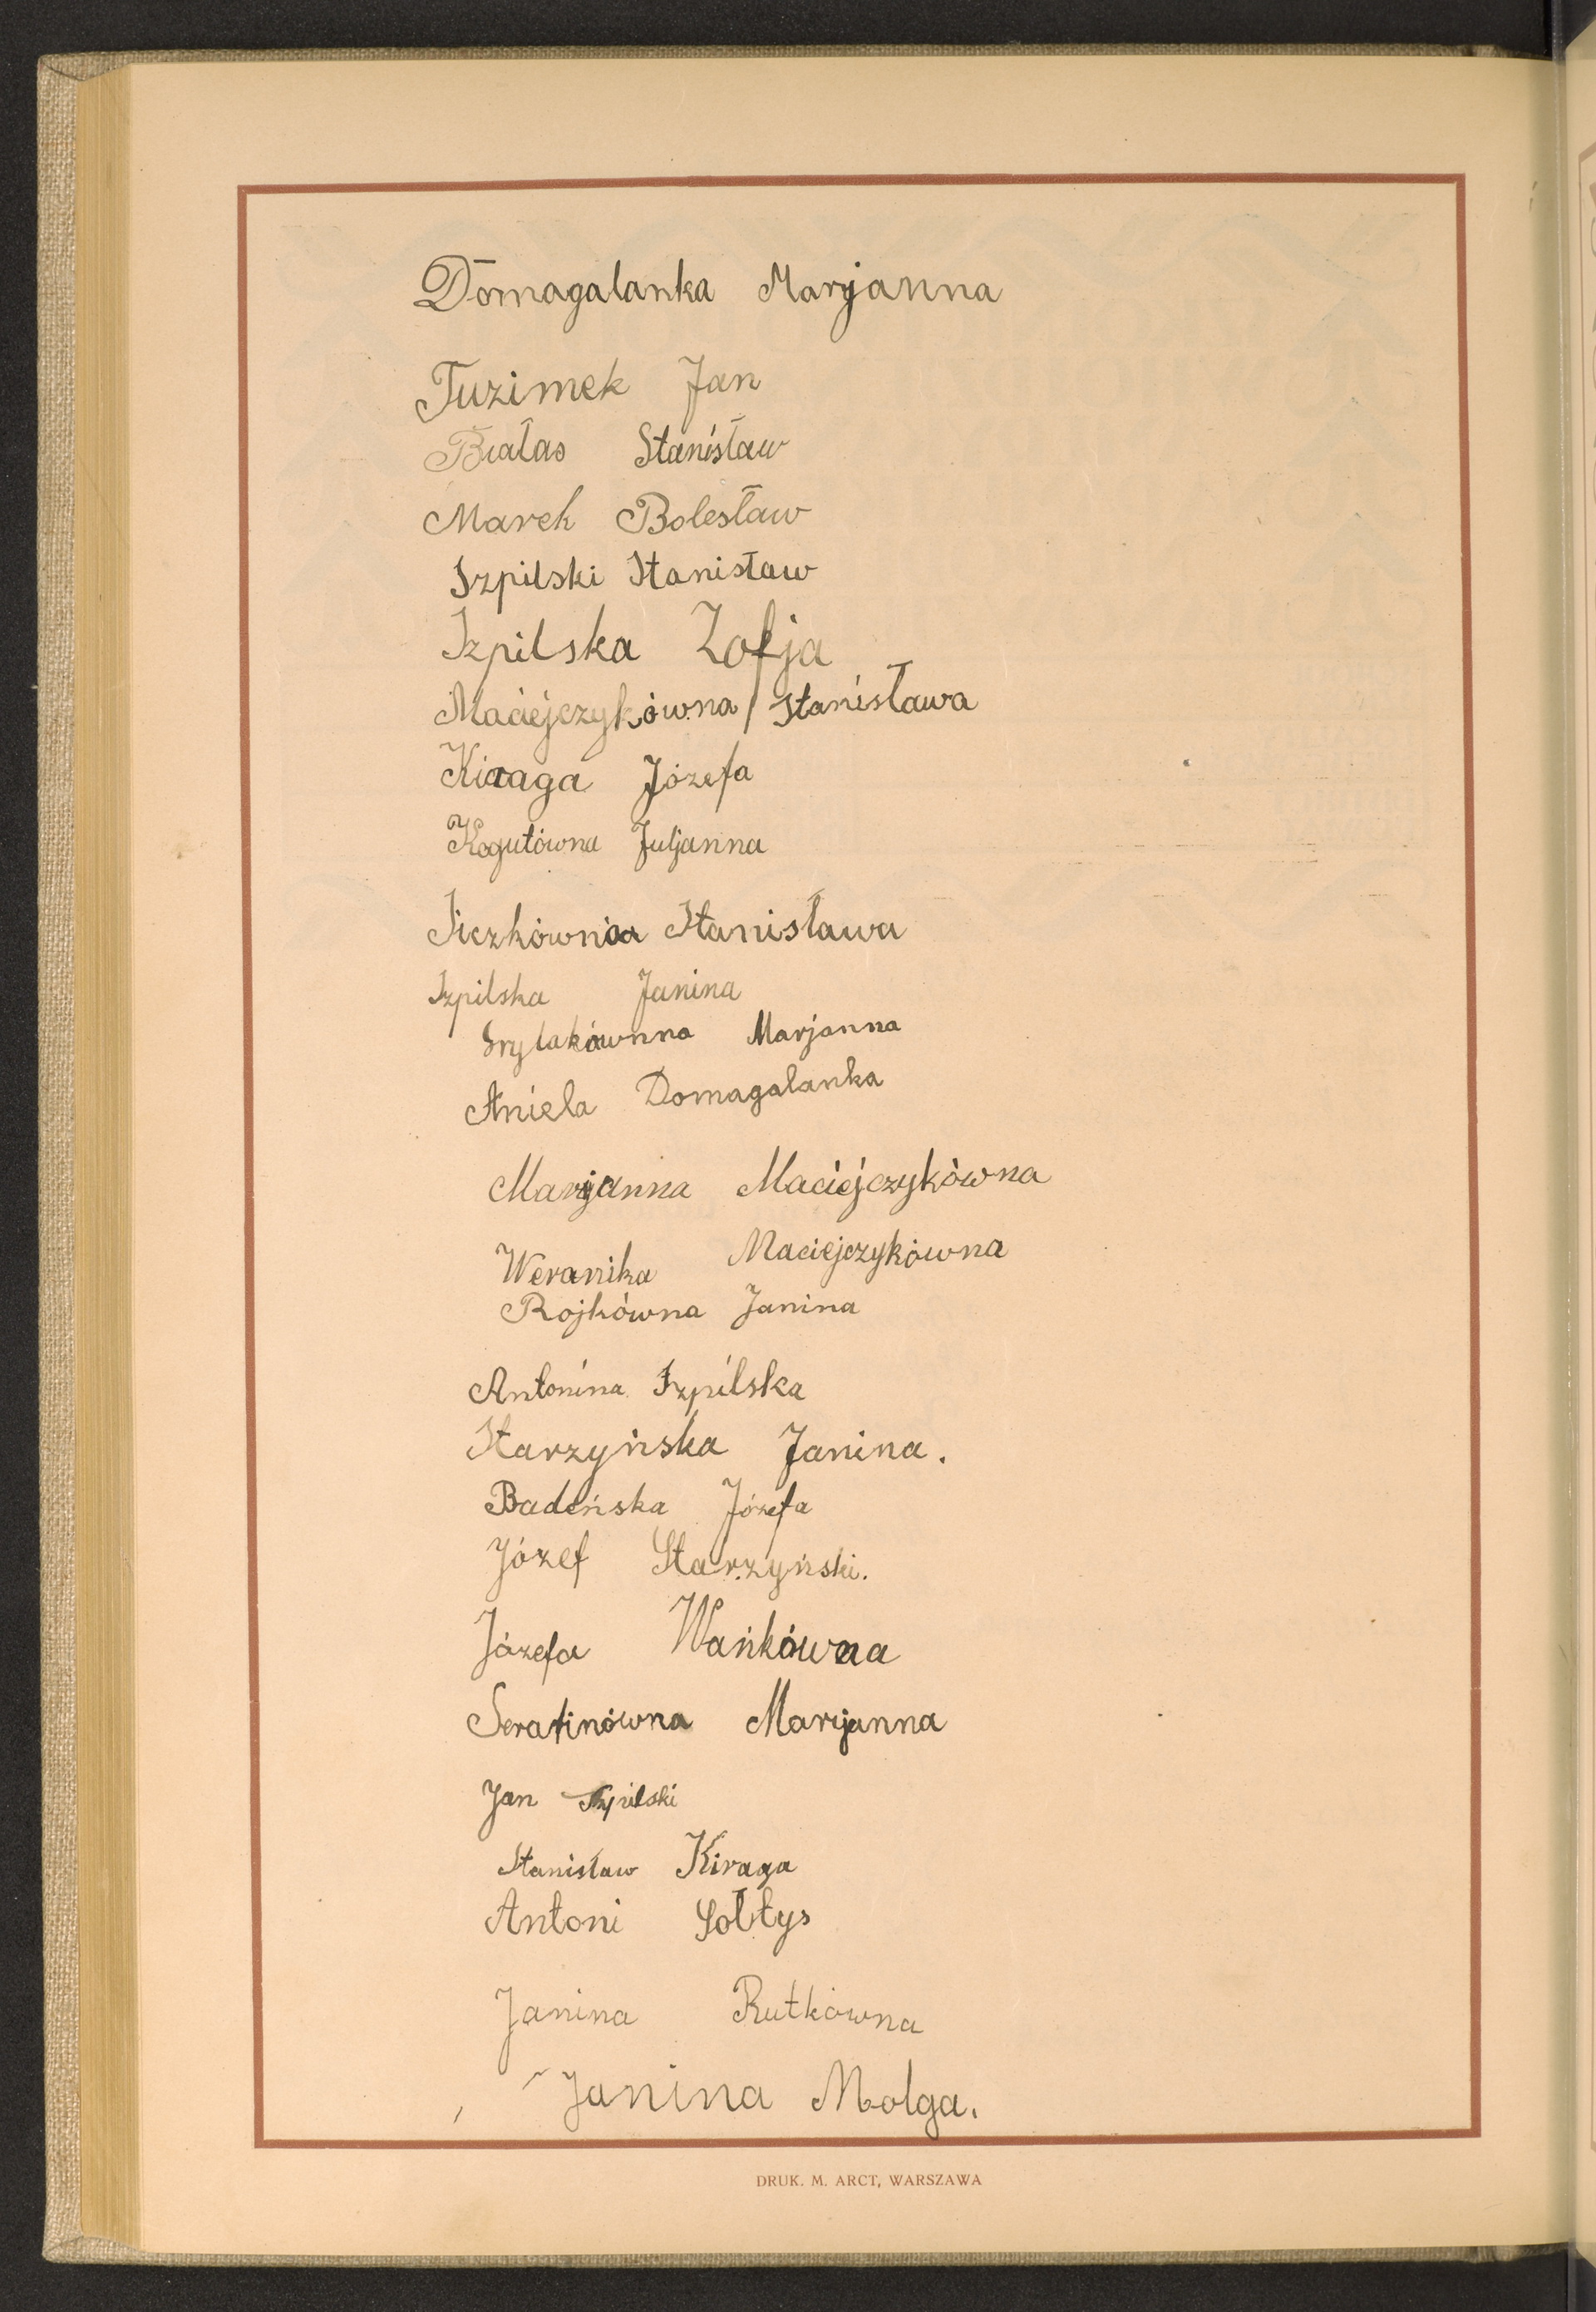 Domagalanka Marjanna
Tuzimek Jan
Białas Stanisław
Marek Bolesław
Szpilski Stanisław
Szpilska Zofja
Maciejczykówna Stanisława
Kiraga Józefa
Kogutówna Juljanna
Siczkówna Stanisława
Szpilska Janina
Marjanna
Aniela Domagalanka
Marjanna Maciejczykówna
Weranika Maciejczykówna
Rojkówna Janina
Antonina Szpilska
Starzyńska Janina.
Badeńska Józefa
Józef Starzyński.
Józefa Wańkówna
Serafinówna Marijanna
Jan Szpilski
Stanisław Kiraga
Antoni Sołtys
Janina Rutkówna
Janina Molga.
DRUK. M. ARCT, WARSZAWA